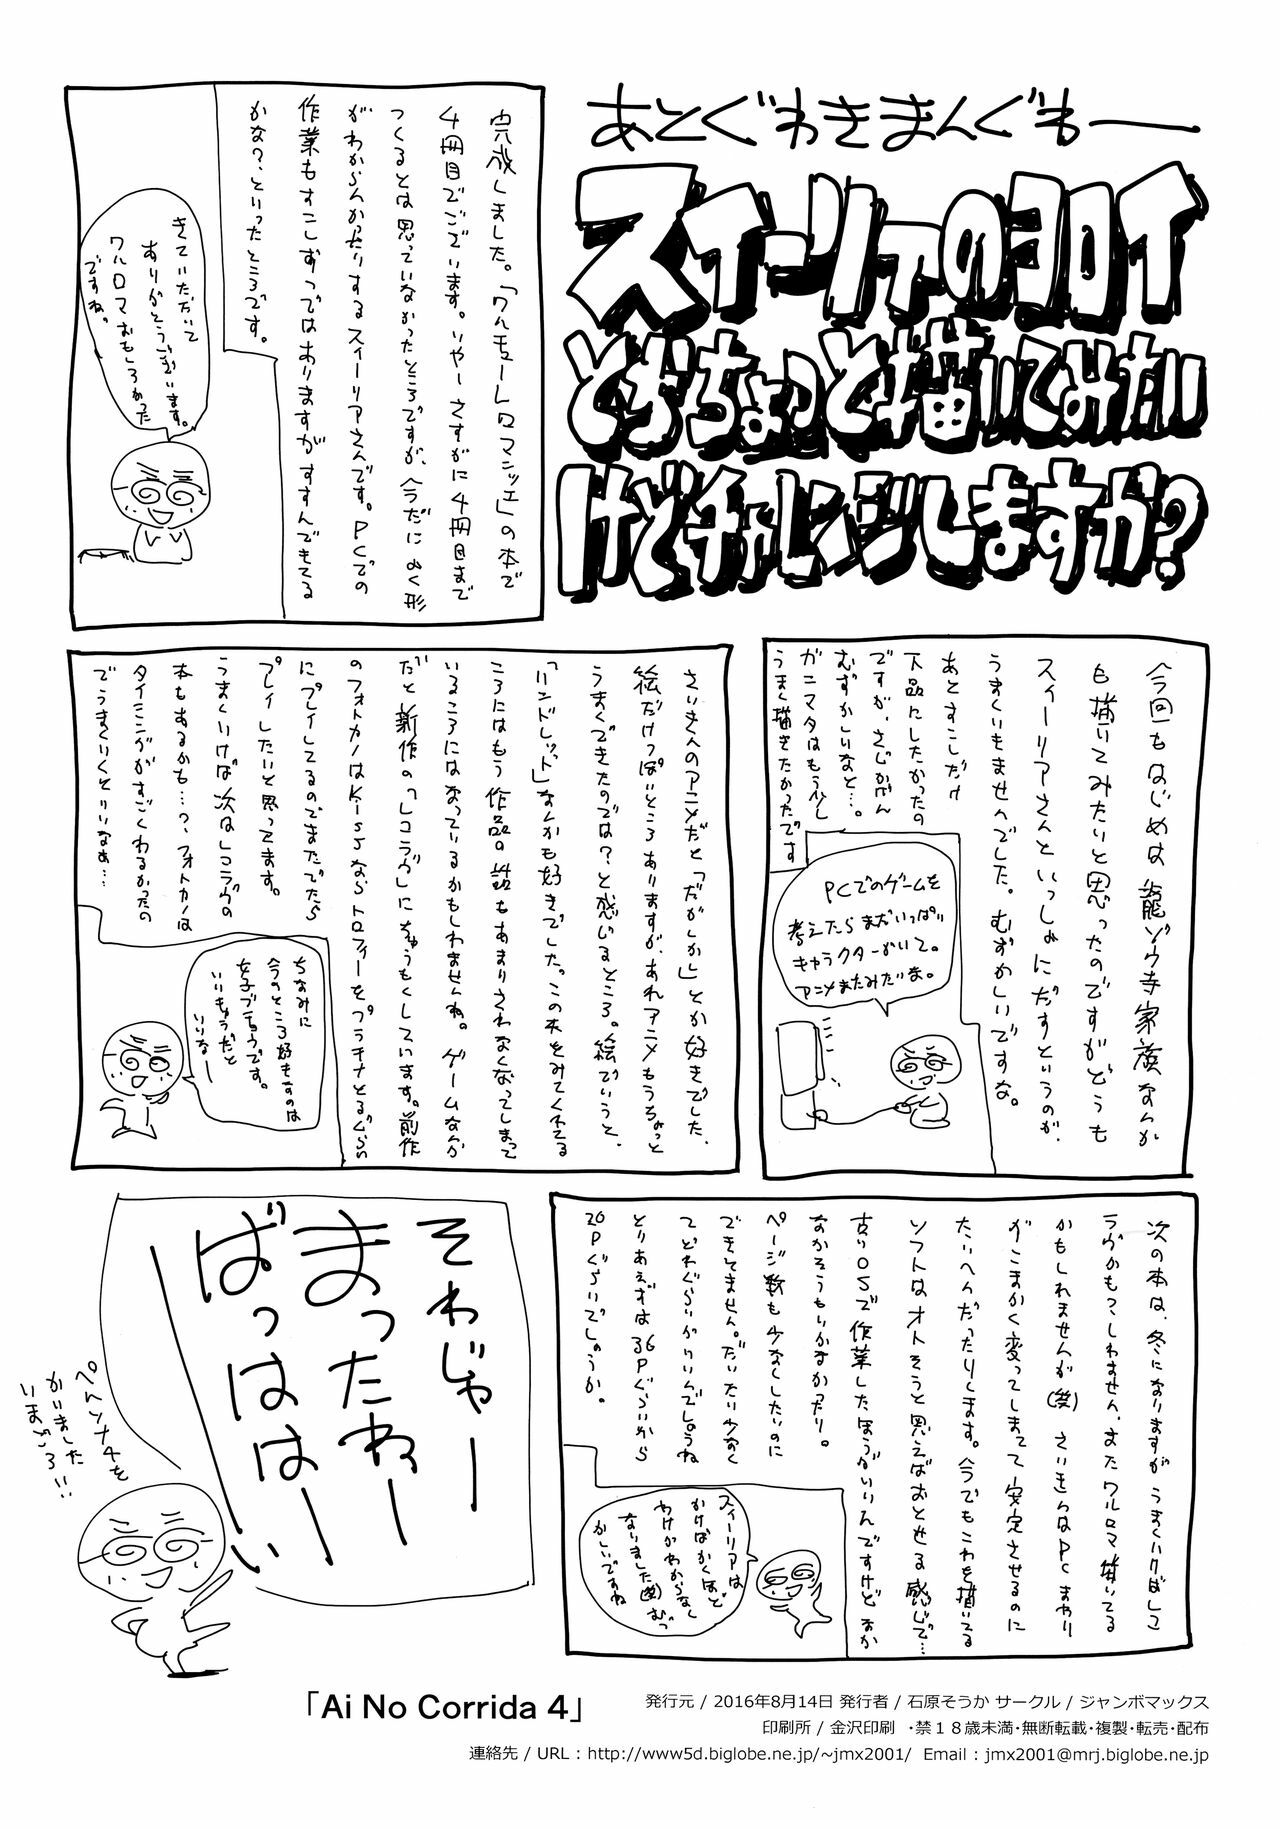 あとぐわきまんぐもー
スイーリアのヨロイ
とかちょっと描いてみたい
けどチャレンジしますか?
完成しました。「ワルキューレロマンツェ」の本で
4冊目でございます。いやーさすがに4冊目まで
つくるとは思っていなかったところですが、今だによく形
がわからんかったりするスイーリアさんです。PCでの
作業もすこしずつではありますがすすんでもてる
かな?、といったところです。
きていただいて
ありがとうございます。
ワルロマおもしろかった
ですね。
今回もはじめは龍ゾウ寺家族なんか
も描いてみたいと思ったのですがどうも
スイーリアさんといっしょにだすというのが、
うまくいきませんでした。むずかしいですな。
あとすこしだけ
下品にしたかったの
ですが、さじかげん
むずかしいなと…。
ガニマタはもう少し
うまく描きたかったです
PCでのゲームを
考えたらまだいっぱい
キャラクターがいて。
アニメまたみたいな。
さいきんのアニメだと「だがしかし」とか好きでした、
絵だけっぽいところありますが、あれアニメもうちょっと
うまくできたのでは?と感じるところ。絵でいうと、
「ハンドレッド」なんかも好きでした。この本をみてくれてる
ころにはもう作品の話もあまりされなくなってしまって
いるころにはなっているかもしれませんね。ゲームなんか
だと新作の「レコラヴ」にちゅうもくしています。前作
のフォトカノはKissならトロフィーをプラチナとるぐらい
にプレイしてるのでまたでたら
プレイしたいと思ってます。
うまくいけば次はレコラヴの
本もあるかも…?、フォトカノは
タイミングがすごくわるかったの
でうまくいくといいなぁ…
ちなみに
今のところ好きなのは
女子プチョウです。
いいキョウだと
いいなー
次の本は、冬になりますがうまくいけばレコ
ラヴかもっ、しれません、またワルロマ描いてる
かもしれませんが(笑)さいきんはPCまわり
がこまかく変ってしまてて安定させるのに
たいへんだったりします。今でもこれを描いてる
ソフトはオトそうと思えばおとせる感じで…
古いOSで作業したほうがいいんですけどなか
なかそうもいかなかったり。
ページ数も少なくしたいのに
できてません。だいたい少なく
てどれぐらいがいいんでしょうね
とりあえずは36Pぐらいから
20Pぐらいでしょうか。
スイーリアは
かけばかくほど
わけがわからなく
なりました(笑)むつ
かしいですね
それじゃー
まったねー
ばっははーい
ペルソナ4を
かいました
いまごろ!!
「Ai No Corrida 4」
発行元 / 2016年8月14日 発行者 / 石原そうか サークル / ジャンボマックス
印刷所 / 金沢印刷 ・禁18歳未満・無断転載・複製・転売・配布
連絡先 / URL : http://www5d.biglobe.ne.jp/~jmx2001/ Email : jmx2001@mrj.biglobe.ne.jp